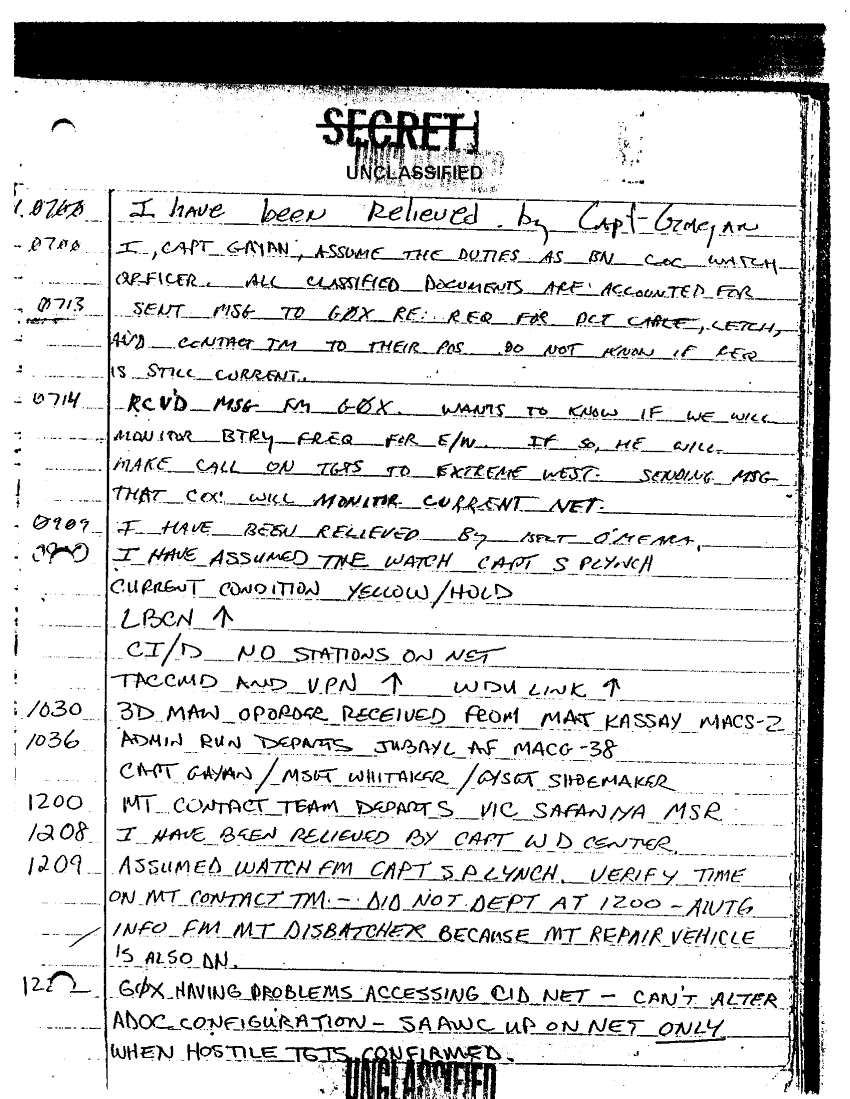 SECRET
UNCLASSIFIED
UNCLASSIFIED
I have been Relieved by Capt
0700 I, CAPT GAYAN, ASSUME THE DUTIES AS BN COC WATCH
OFFICER. ALL CLASSIFIED DOCUMENTS ARE ACCOUNTED FOR
0713 SENT MSG TO GØX RE: REQ FOR DCT CABLE, LETCH,
AND CONTACT TM TO THEIR POS. DO NOT KNOW IF REQ
IS STILL CURRENT.
0714 RCV'D MSG FM GØX. WANTS TO KNOW IF WE WILL
MONITOR BTRY FREQ FOR E/W. IF SO, HE WILL
MAKE CALL ON TGTS TO EXTREME WEST. SENDING MSG
THAT COC WILL MONITOR CURRENT NET.
0909 I HAVE BEEN RELIEVED By O'MEARA.
I HAVE ASSUMED THE WATCH CAPT S P LYNCH
CURRENT CONDITION YELLOW/HOLD
LBCN ↑
CI/D NO STATIONS ON NET
TACCMD AND VPN ↑ WDU LINK ↑
1030 3D MAW OPORDER RECEIVED FROM MAJ KASSAY MACS-2
1036 ADMIN RUN DEPARTS JUBAYL AF MACG-38
CAPT GAYAN/MSGT WHITAKER/GYSGT SHOEMAKER
1200 MT CONTACT TEAM DEPARTS VIC SAFANIYA MSR
1208 I HAVE BEEN RELIEVED BY CAPT W D CENTER.
1209 ASSUMED WATCH FM CAPT S P LYNCH. VERIFY TIME
ON MT CONTACT TM. - DID NOT DEPT AT 1200 - AWTG
INFO FM MT DISBATCHER BECAUSE MT REPAIR VEHICLE
IS ALSO DN.
GØX HAVING PROBLEMS ACCESSING CID NET - CAN'T ALTER
ADOC CONFIGURATION - SAAWC UP ON NET ONLY
WHEN HOSTILE TGTS CONFIRMED.
UNCLASSIFIED